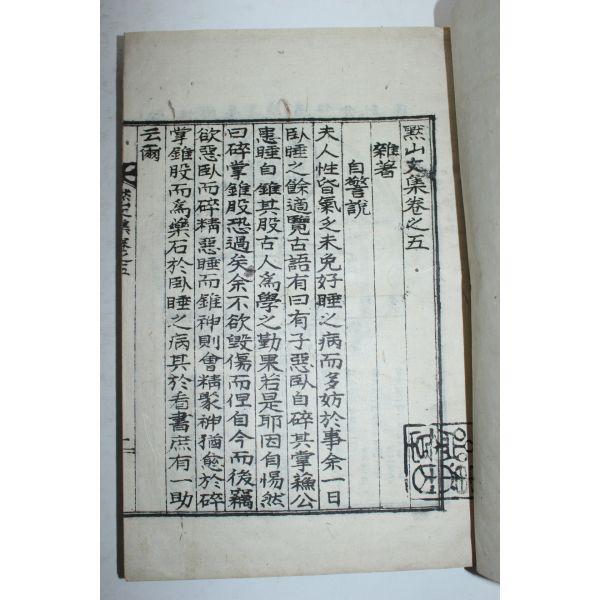 默山文集卷之五
雜著
自警說
夫人性昏氣乏未免好睡之病而多妨於事余一日
臥睡之餘適覽古語有曰有子惡臥自碎其掌蘇公
患睡自錐其股古人爲學之勤果若是耶因自惕然
曰碎掌錐股恐過矣余不欲毁傷而但自今而後竊
欲惡臥而碎精惡睡而錐神則會精聚神猶愈於碎
掌錐股而爲藥石於臥睡之病其於看書庶有一助
云爾